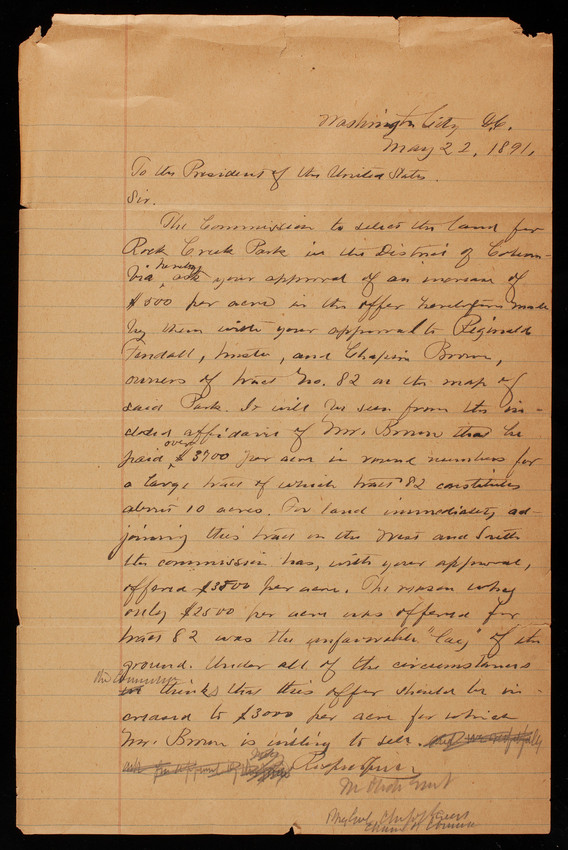 Washington City D.C.
May 22, 1891.
To the President of the United States.
Sir.
The Commission to select the land for
Rock Creek Park in the District of Colum-
bia, hereby ask your approval of an increase of
$500 per acre in the offer heretofore made
by them with your approval to Reginald
Fendall, trustee, and Chapin Brown,
owners of tract No. 82 on the map of
said Park. It will be seen from the in-
closed affidavit of Mr. Brown that he
paid over $3700 per acre in round numbers for
a large tract of which tract 82 constitutes
about 10 acres. For land immediately ad-
joining this tract on the West and South
the commission has, with your approval,
offered $3500 per acre. The reason why
only $2500 per acre was offered for
tract 82 was the unfavorable "lay" of the
ground. Under all of the circumstances
the Commission
we thinks that this offer should be in-
creased to $3000 per acre for which
Mr. Brown is willing to sell. and respectfully
ask the approval of
Respectfully
Brig Genl Chief of Engrs
Chairman of Commission